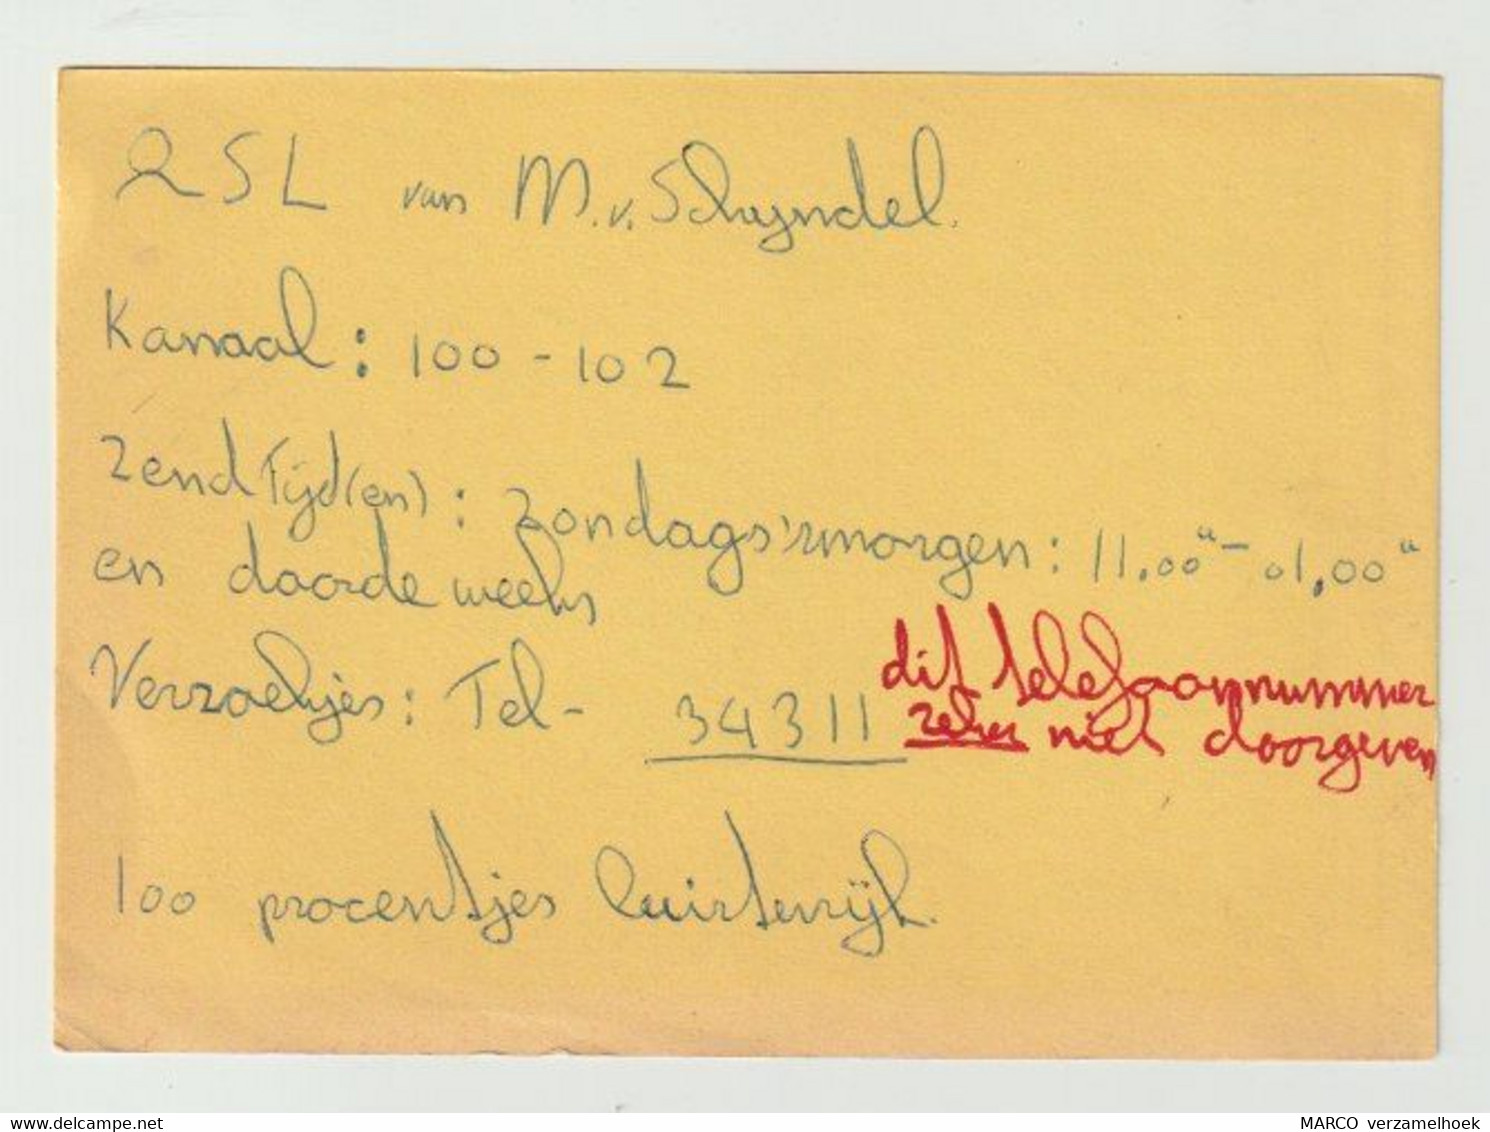 QSL van M. v. Schijndel.
Kanaal : 100 - 102
Zendtijd(en) : Zondags'smorgen : 11.00" - 01,00"
en doorde weeks
Verzoekjes : Tel - 34311
dit telefoonnummer
zeker niet doorgeven
100 procentjes luisterrijk.
MARCO verzamelhoek